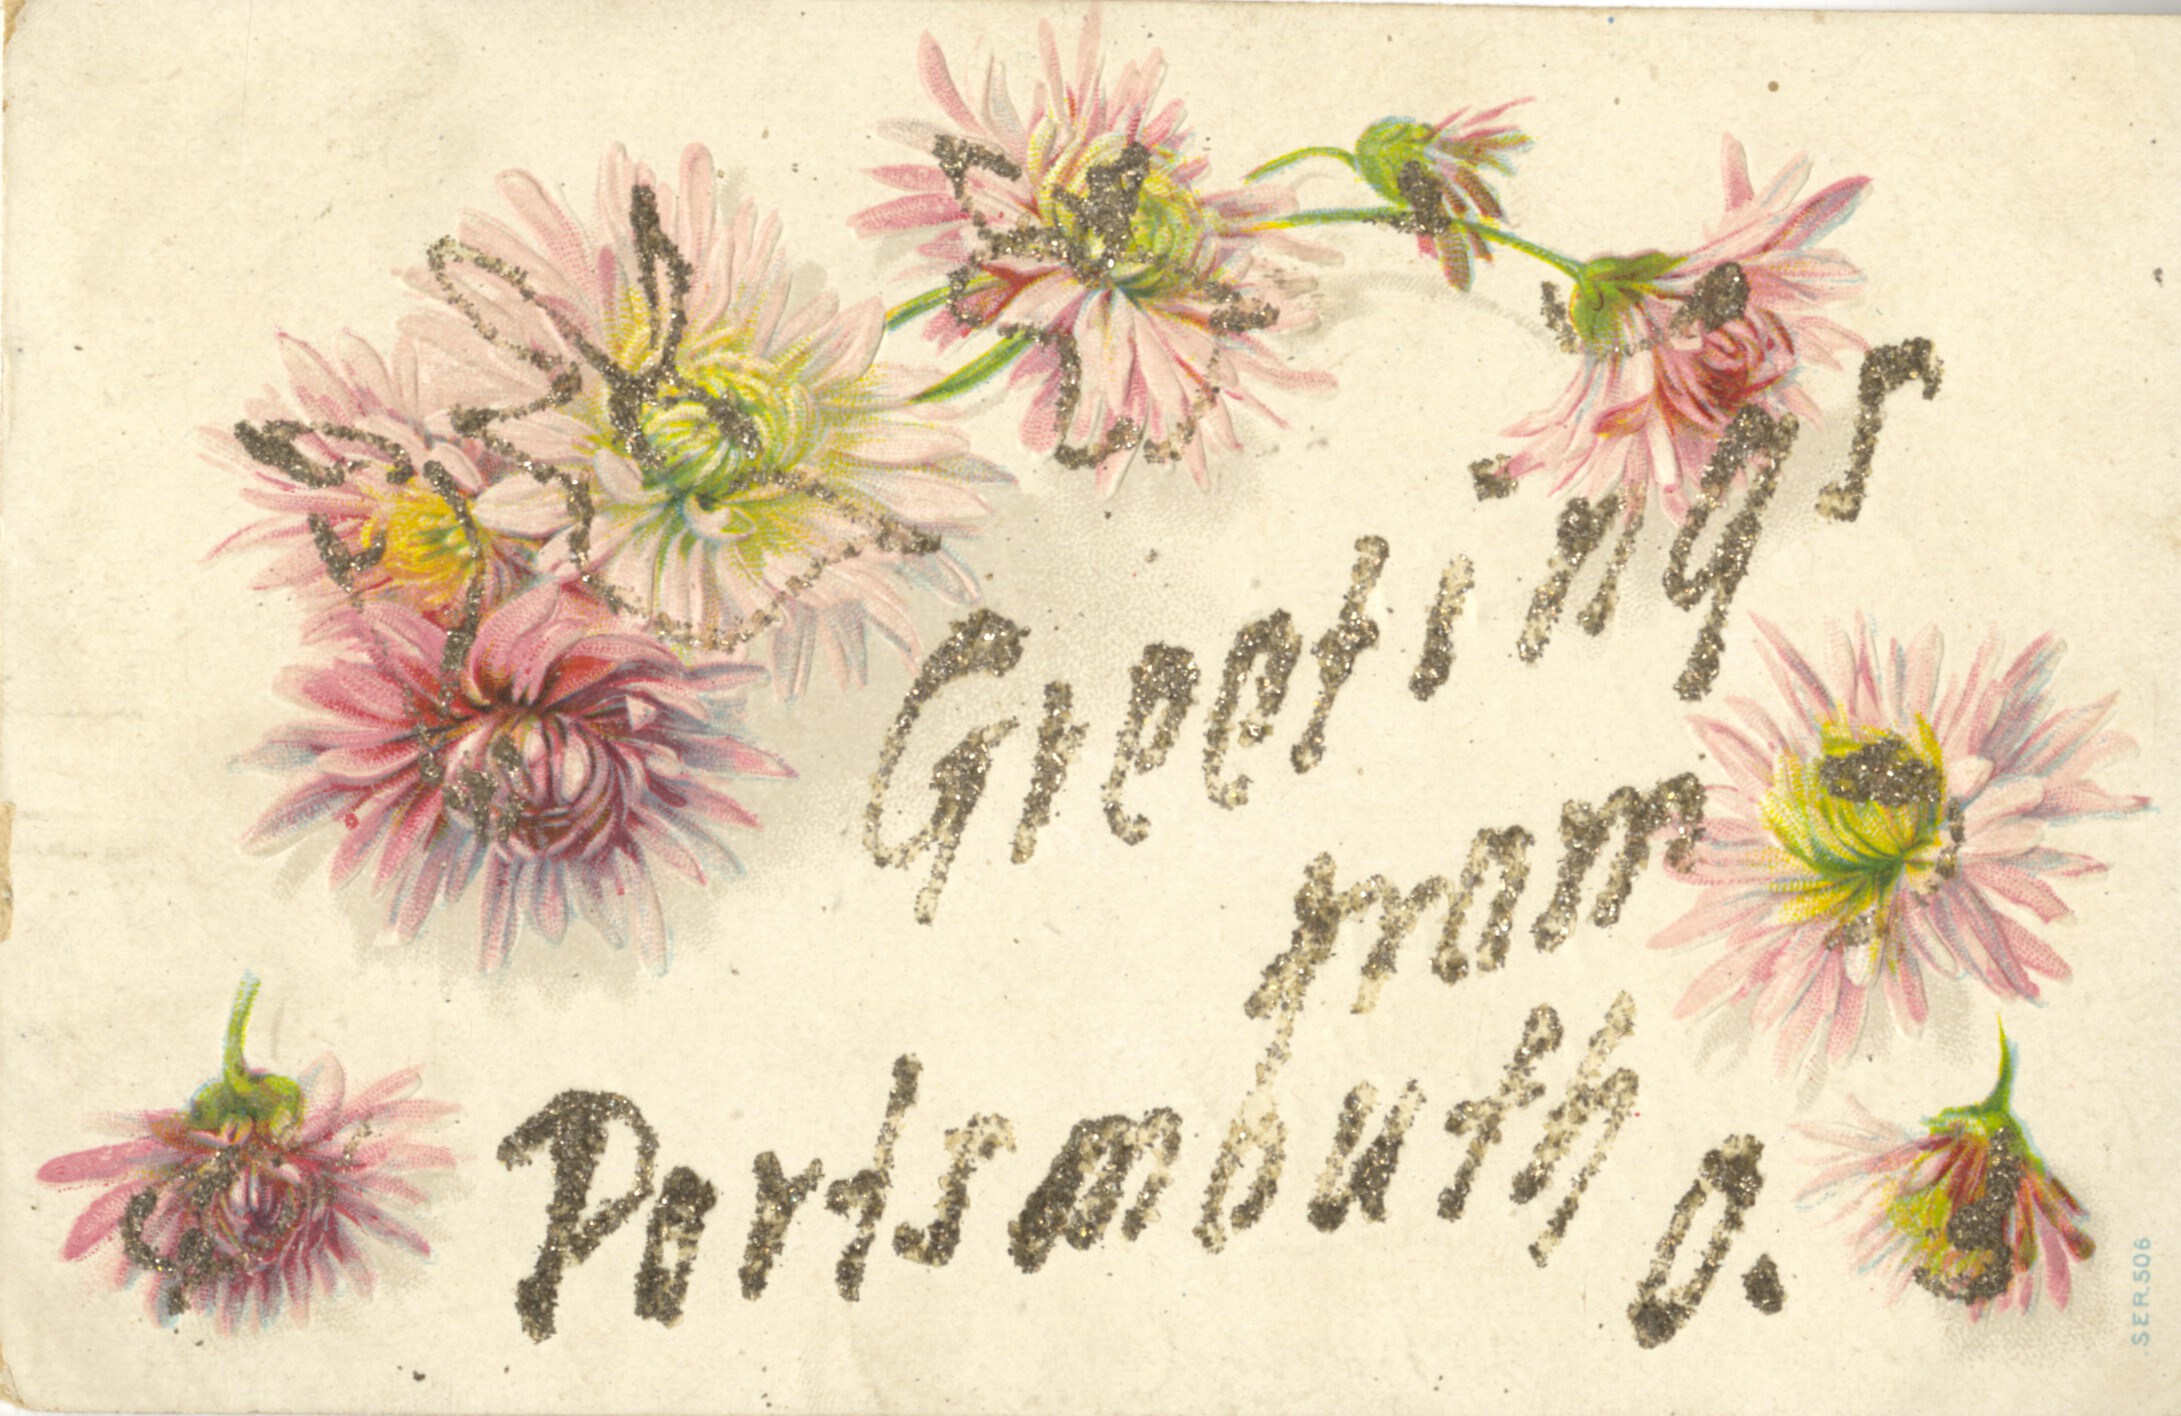 Greetings
from
Portsmouth O.
SER.506